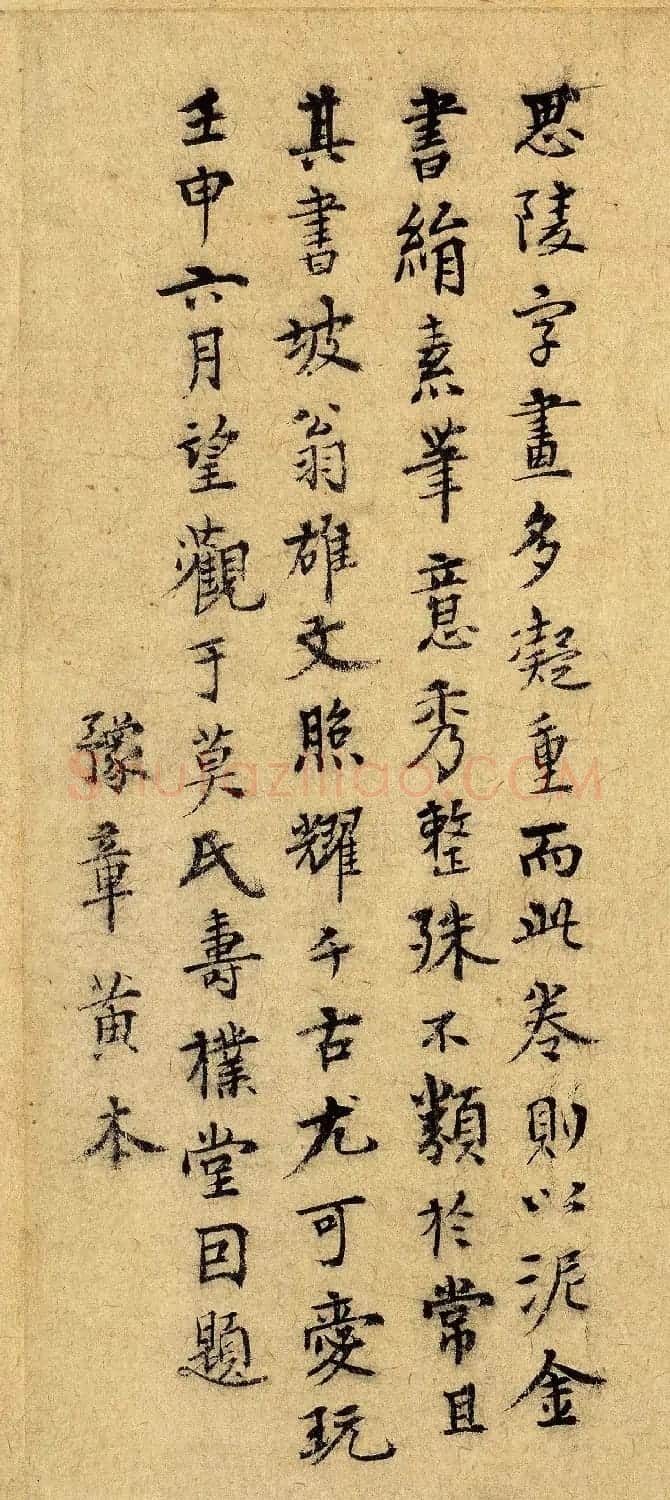 思陵字畫多凝重而此卷則以泥金
書絹素筆意秀整殊不類於常且
其書坡翁雄文照耀千古尤可愛玩
壬申六月望觀于莫氏壽樸堂因題
豫章黄本
shufaziliao.COM